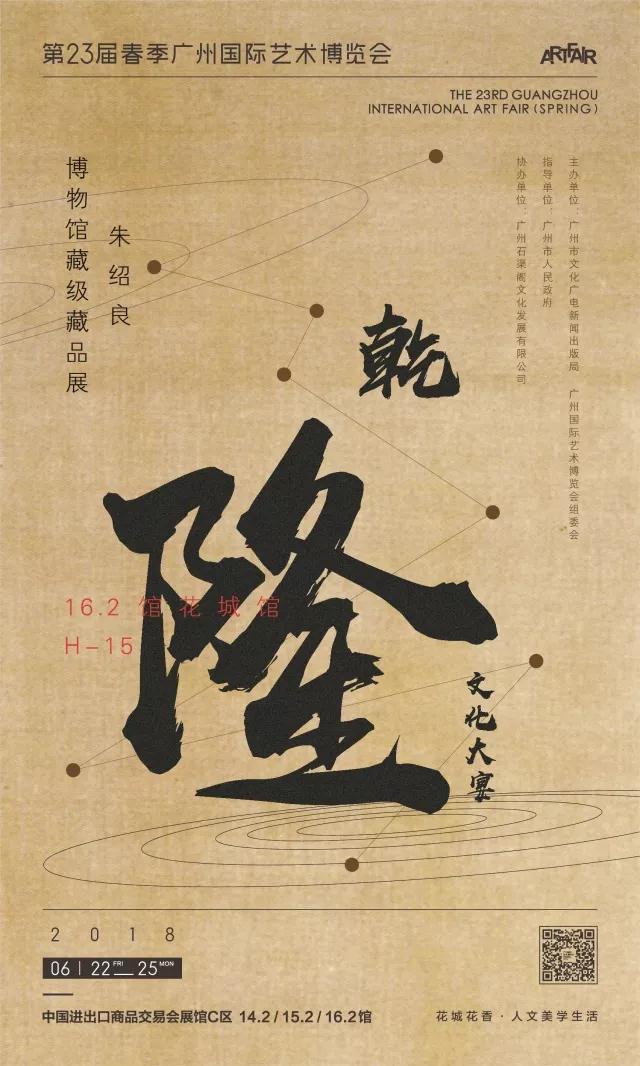 第23届春季广州国际艺术博览会
ARTFAIR
THE 23RD GUANGZHOU
INTERNATIONAL ART FAIR (SPRING)
主办单位：广州市文化广电新闻出版局 广州国际艺术博览会组委会
指导单位：广州市人民政府
协办单位：广州石渠阁文化发展有限公司
朱绍良
博物馆藏级藏品展
乾
隆
文化大宴
16.2 馆花城馆
H-15
2018
06 | 22FRI—25MON
中国进出口商品交易会展馆C区 14.2 / 15.2 / 16.2馆
花城花香·人文美学生活